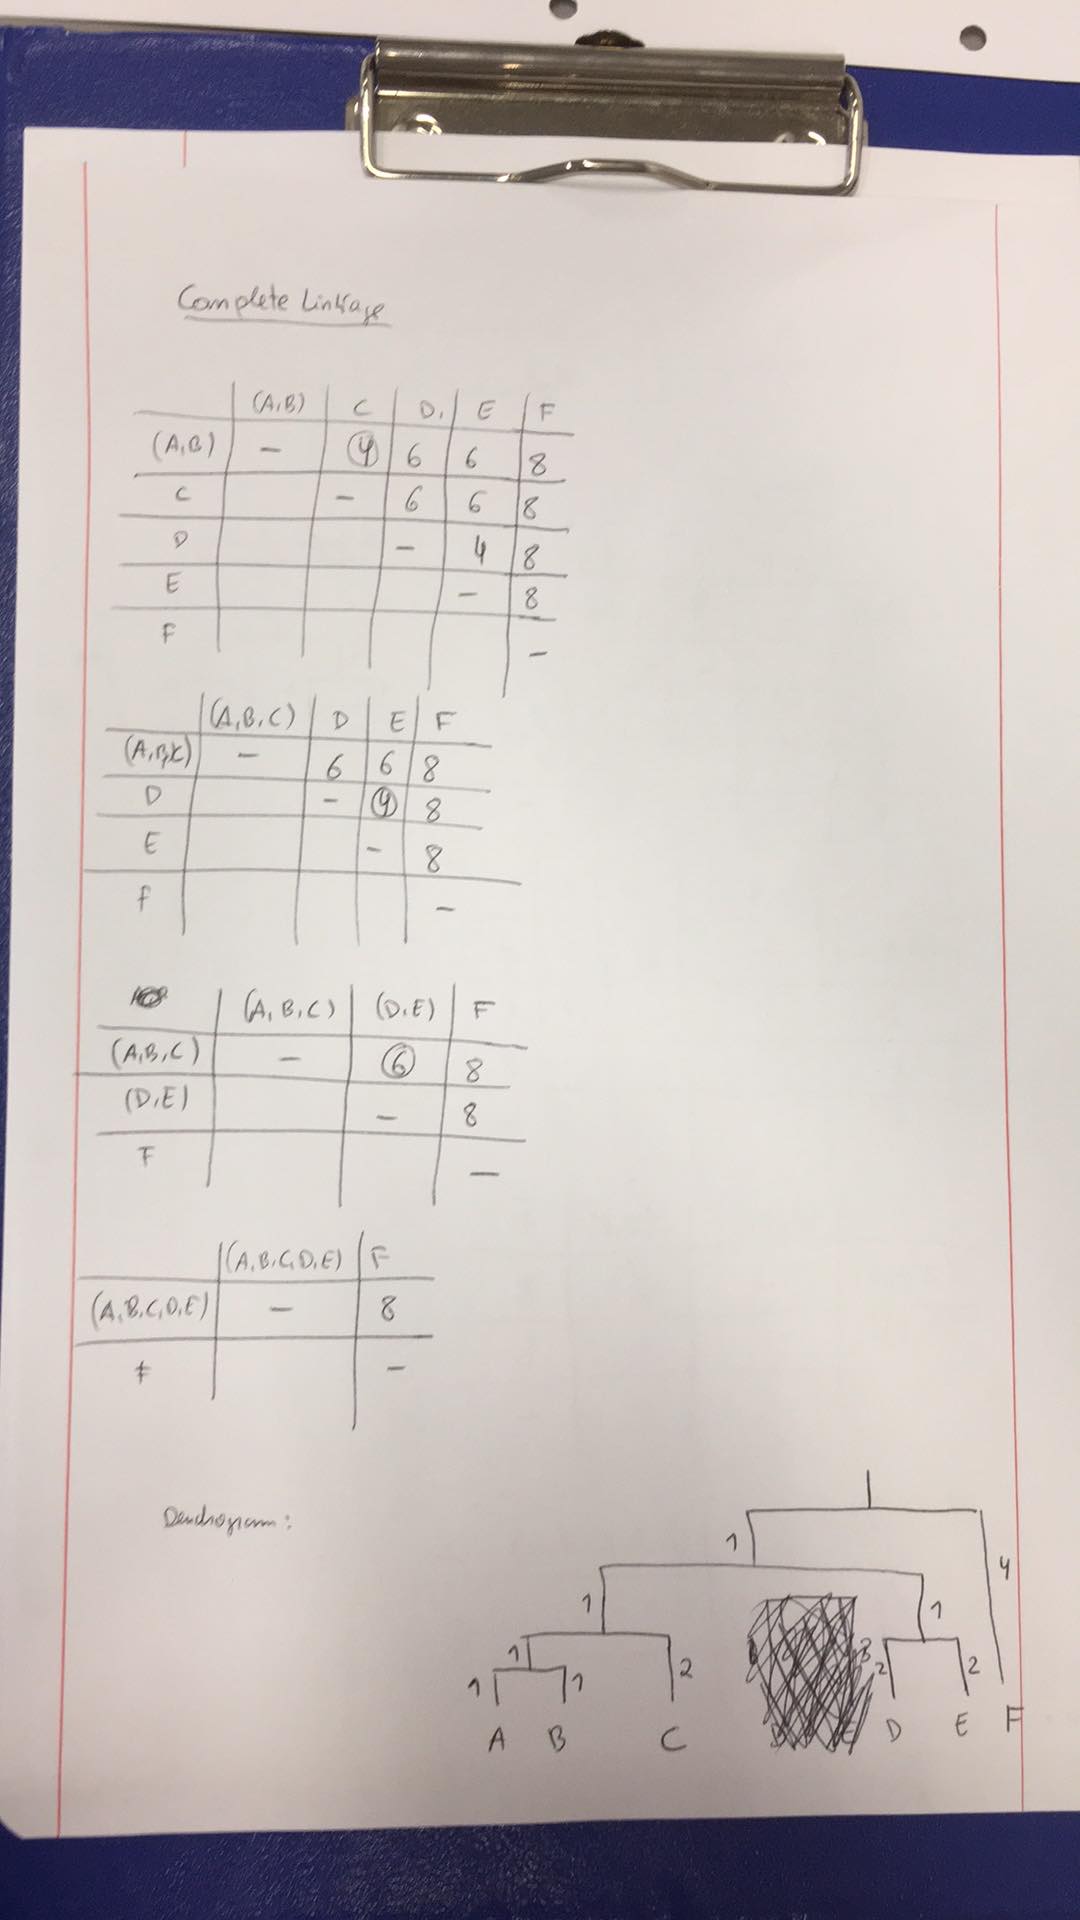 Complete Linkage
(A,B) C D, E F
(A,B) - 4 6 6 8
C - 6 6 8
D - 4 8
E - 8
F -
(A,B,C) D E F
(A,B,C) - 6 6 8
D - 4 8
E - 8
F -
(A,B,C) (D,E) F
(A,B,C) - 6 8
(D,E) - 8
F -
(A,B,C,D,E) F
(A,B,C,D,E) - 8
F -
Dendrogram:
1 4
1 1
1 2 2 2
1 1
A B C D E F